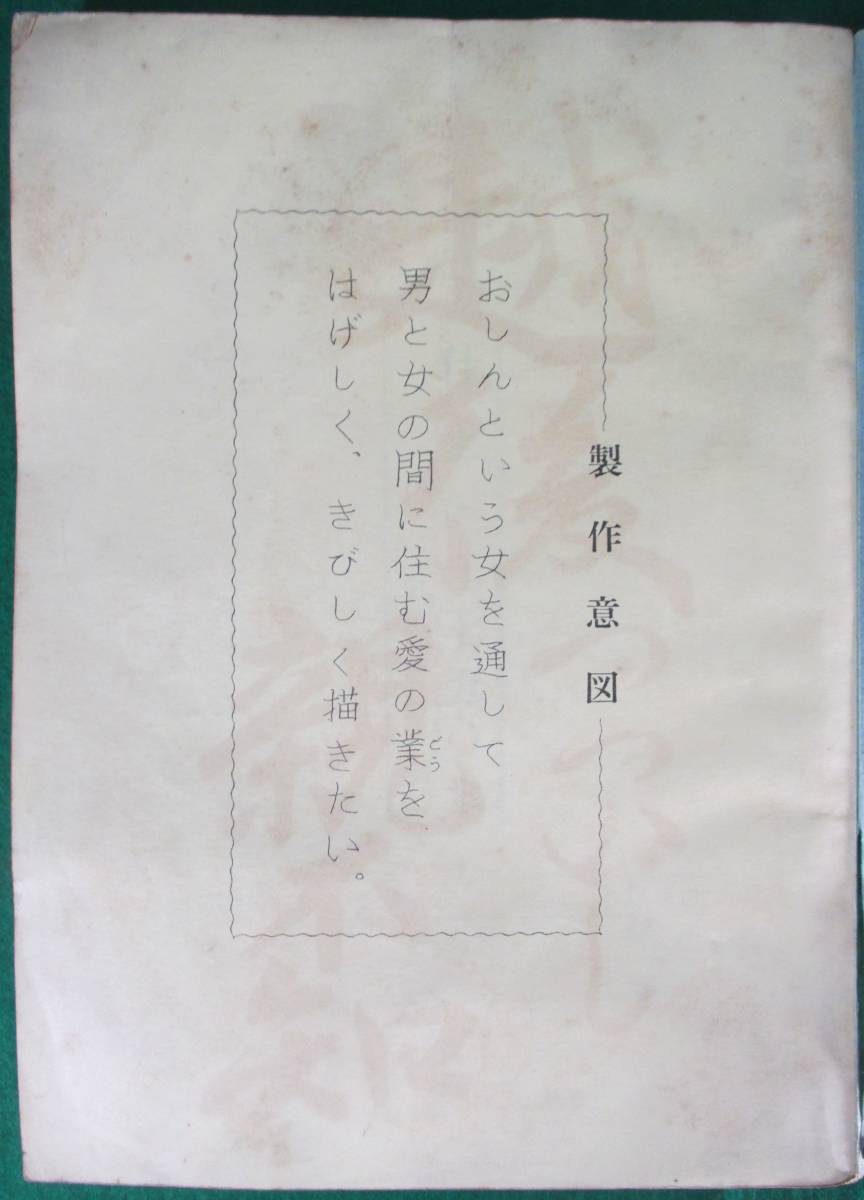 製作意図
おしんという女を通して
男と女の間に住む愛の業を
ごう
はげしく、きびしく描きたい。